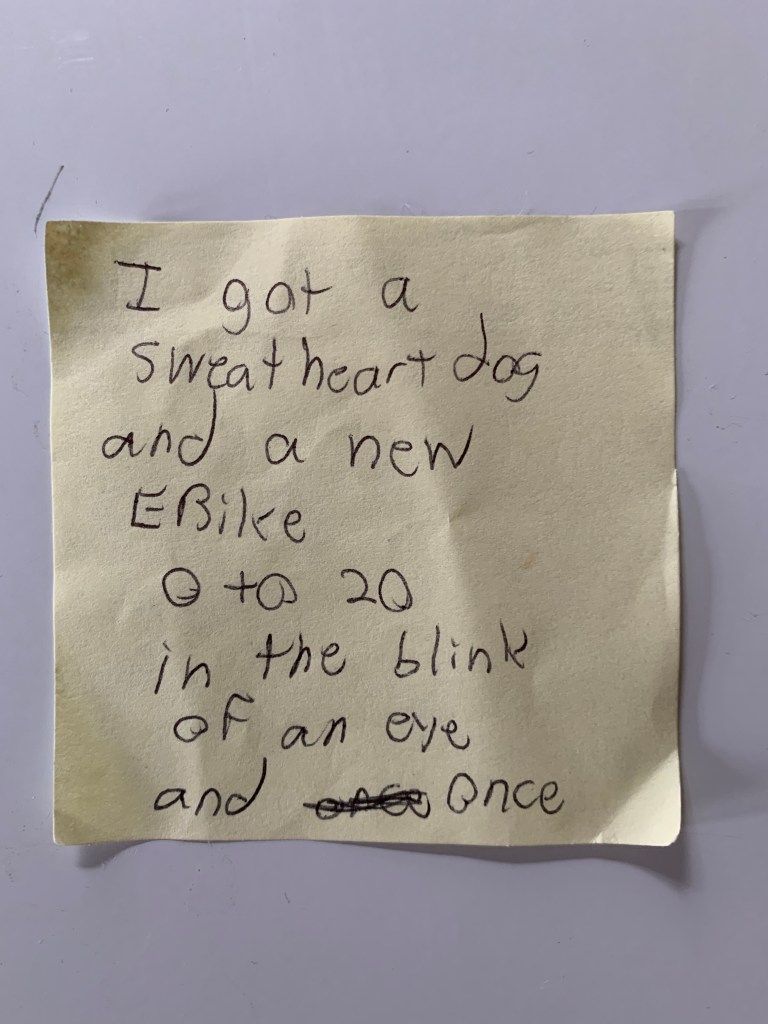 I got a
sweatheart dog
and a new
EBike
0 to 20
in the blink
of an eye
and once Once